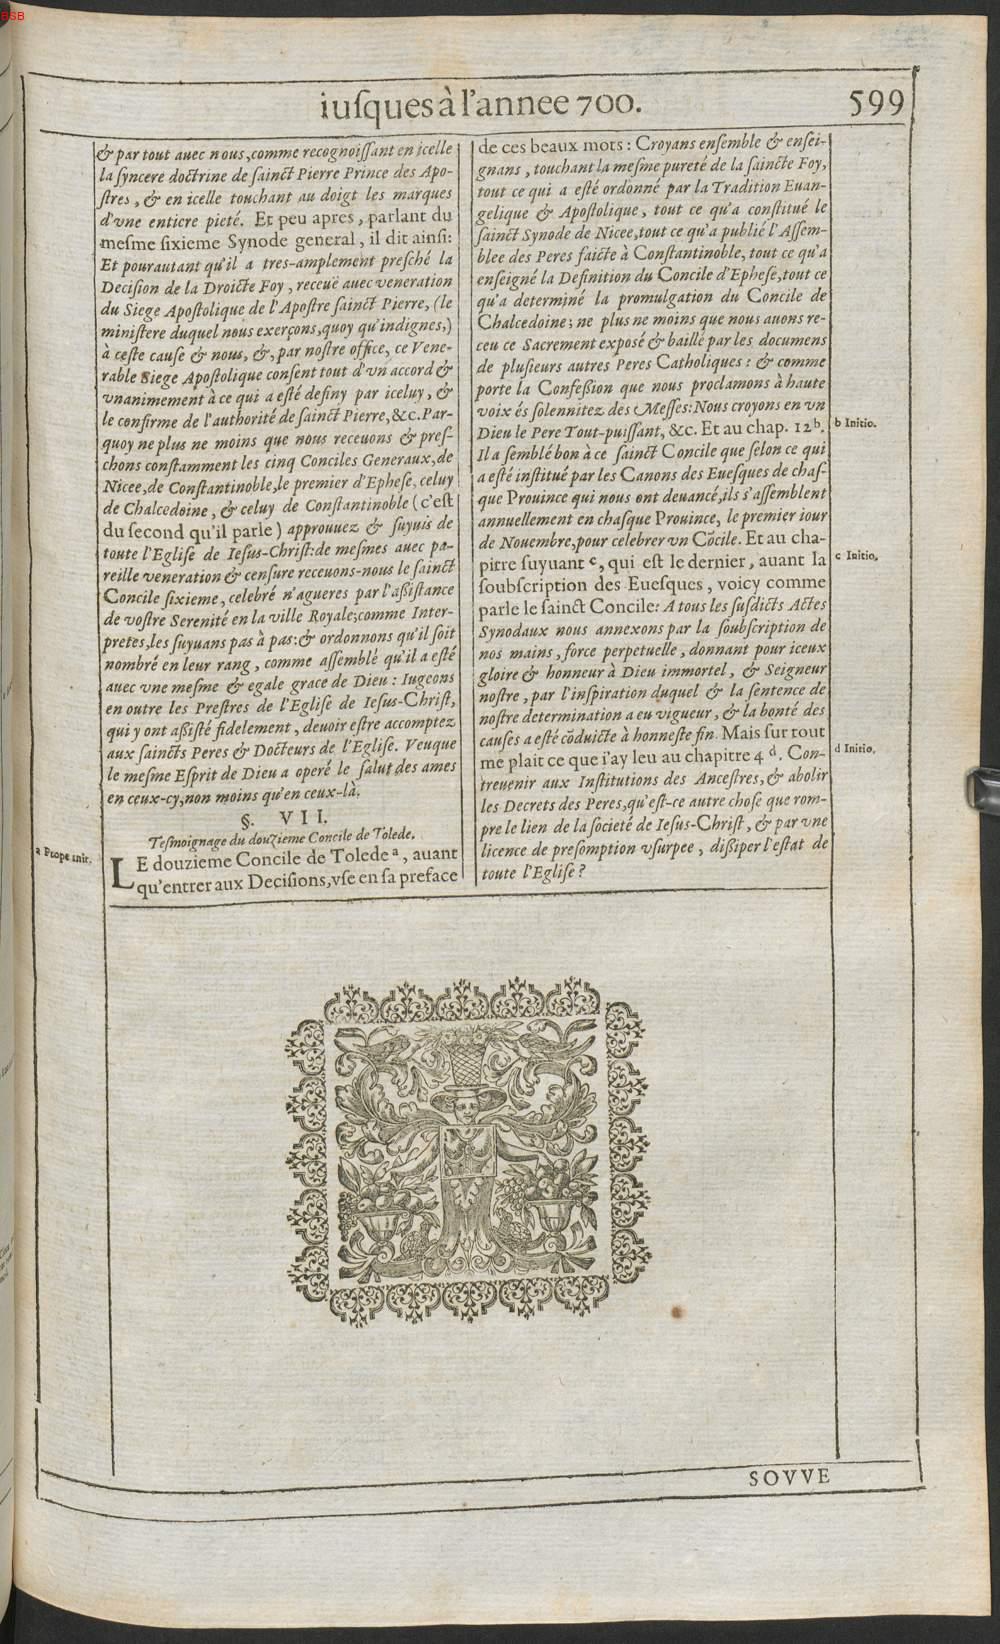 BSB
iuſques à l'annee 700. 599
& par tout auec nous, comme recognoiſſant en icelle
la ſyncere doctrine de ſainct Pierre Prince des Apo-
ſtres, & en icelle touchant au doigt les marques
d'vne entiere pieté. Et peu apres, parlant du
meſme ſixieme Synode general, il dit ainſi:
Et pourautant qu'il a tres-amplement preſché la
Deciſion de la Droicte Foy, receuë auec veneration
du Siege Apoſtolique de l'Apoſtre ſainct Pierre, (le
miniſtere duquel nous exerçons, quoy qu'indignes,)
à ceſte cauſe & nous, &, par noſtre office, ce Vene-
rable Siege Apoſtolique conſent tout d'vn accord &
vnanimement à ce qui a eſté definy par iceluy, &
le confirme de l'authorité de ſainct Pierre, &c. Par-
quoy ne plus ne moins que nous receuons & preſ-
chons conſtamment les cinq Conciles Generaux, de
Nicee, de Conſtantinoble, le premier d'Epheſe, celuy
de Chalcedoine, & celuy de Conſtantinoble (c'eſt
du ſecond qu'il parle) approuuez & ſuyuis de
toute l'Egliſe de Ieſus-Chriſt: de meſmes auec pa-
reille veneration & cenſure receuons-nous le ſainct
Concile ſixieme, celebré n'agueres par l'aſſiſtance
de voſtre Serenité en la ville Royale; comme Inter-
pretes, les ſuyuans pas à pas: & ordonnons qu'il ſoit
nombré en leur rang, comme aſſemblé qu'il a eſté
auec vne meſme & egale grace de Dieu: Iugeons
en outre les Preſtres de l'Egliſe de Ieſus-Chriſt,
qui y ont aſſiſté fidelement, deuoir eſtre accomptez
aux ſaincts Peres & Docteurs de l'Egliſe. Veu que
le meſme Eſprit de Dieu a operé le ſalut des ames
en ceux-cy, non moins qu'en ceux-là.
§. VII.
Teſmoignage du douzieme Concile de Tolede.
a Prope init.
LE douzieme Concile de Tolede a, auant
qu'entrer aux Deciſions, vſe en ſa preface
de ces beaux mots: Croyans enſemble & enſei-
gnans, touchant la meſme pureté de la ſaincte Foy,
tout ce qui a eſté ordonné par la Tradition Euan-
gelique & Apoſtolique, tout ce qu'a conſtitué le
ſainct Synode de Nicee, tout ce qu'a publié l'Aſſem-
blee des Peres faicte à Conſtantinoble, tout ce qu'a
enſeigné la Definition du Concile d'Epheſe, tout ce
qu'a determiné la promulgation du Concile de
Chalcedoine; ne plus ne moins que nous auons re-
ceu ce Sacrement expoſé & baillé par les documens
de pluſieurs autres Peres Catholiques: & comme
porte la Confeſſion que nous proclamons à haute
voix és ſolennitez des Meſſes: Nous croyons en vn
Dieu le Pere Tout-puiſſant, &c. Et au chap. 12 b.
b Initio.
Il a ſemblé bon à ce ſainct Concile que ſelon ce qui
a eſté inſtitué par les Canons des Eueſques de chaſ-
que Prouince qui nous ont deuancé, ils s'aſſemblent
annuellement en chaſque Prouince, le premier iour
de Nouembre, pour celebrer vn Cõcile. Et au cha-
pitre ſuyuant c, qui eſt le dernier, auant la
c Initio.
ſoubſcription des Eueſques, voicy comme
parle le ſainct Concile: A tous les ſuſdicts Actes
Synodaux nous annexons par la ſoubſcription de
nos mains, force perpetuelle, donnant pour iceux
gloire & honneur à Dieu immortel, & Seigneur
noſtre, par l'inſpiration duquel & la ſentence de
noſtre determination a eu vigueur, & la bonté des
cauſes a eſté cõduicte à honneſte fin. Mais ſur tout
me plait ce que i'ay leu au chapitre 4 d. Con-
d Initio.
treuenir aux Inſtitutions des Anceſtres, & abolir
les Decrets des Peres, qu'eſt-ce autre choſe que rom-
pre le lien de la ſocieté de Ieſus-Chriſt, & par vne
licence de preſomption vſurpee, diſſiper l'eſtat de
toute l'Egliſe?
SOVVE